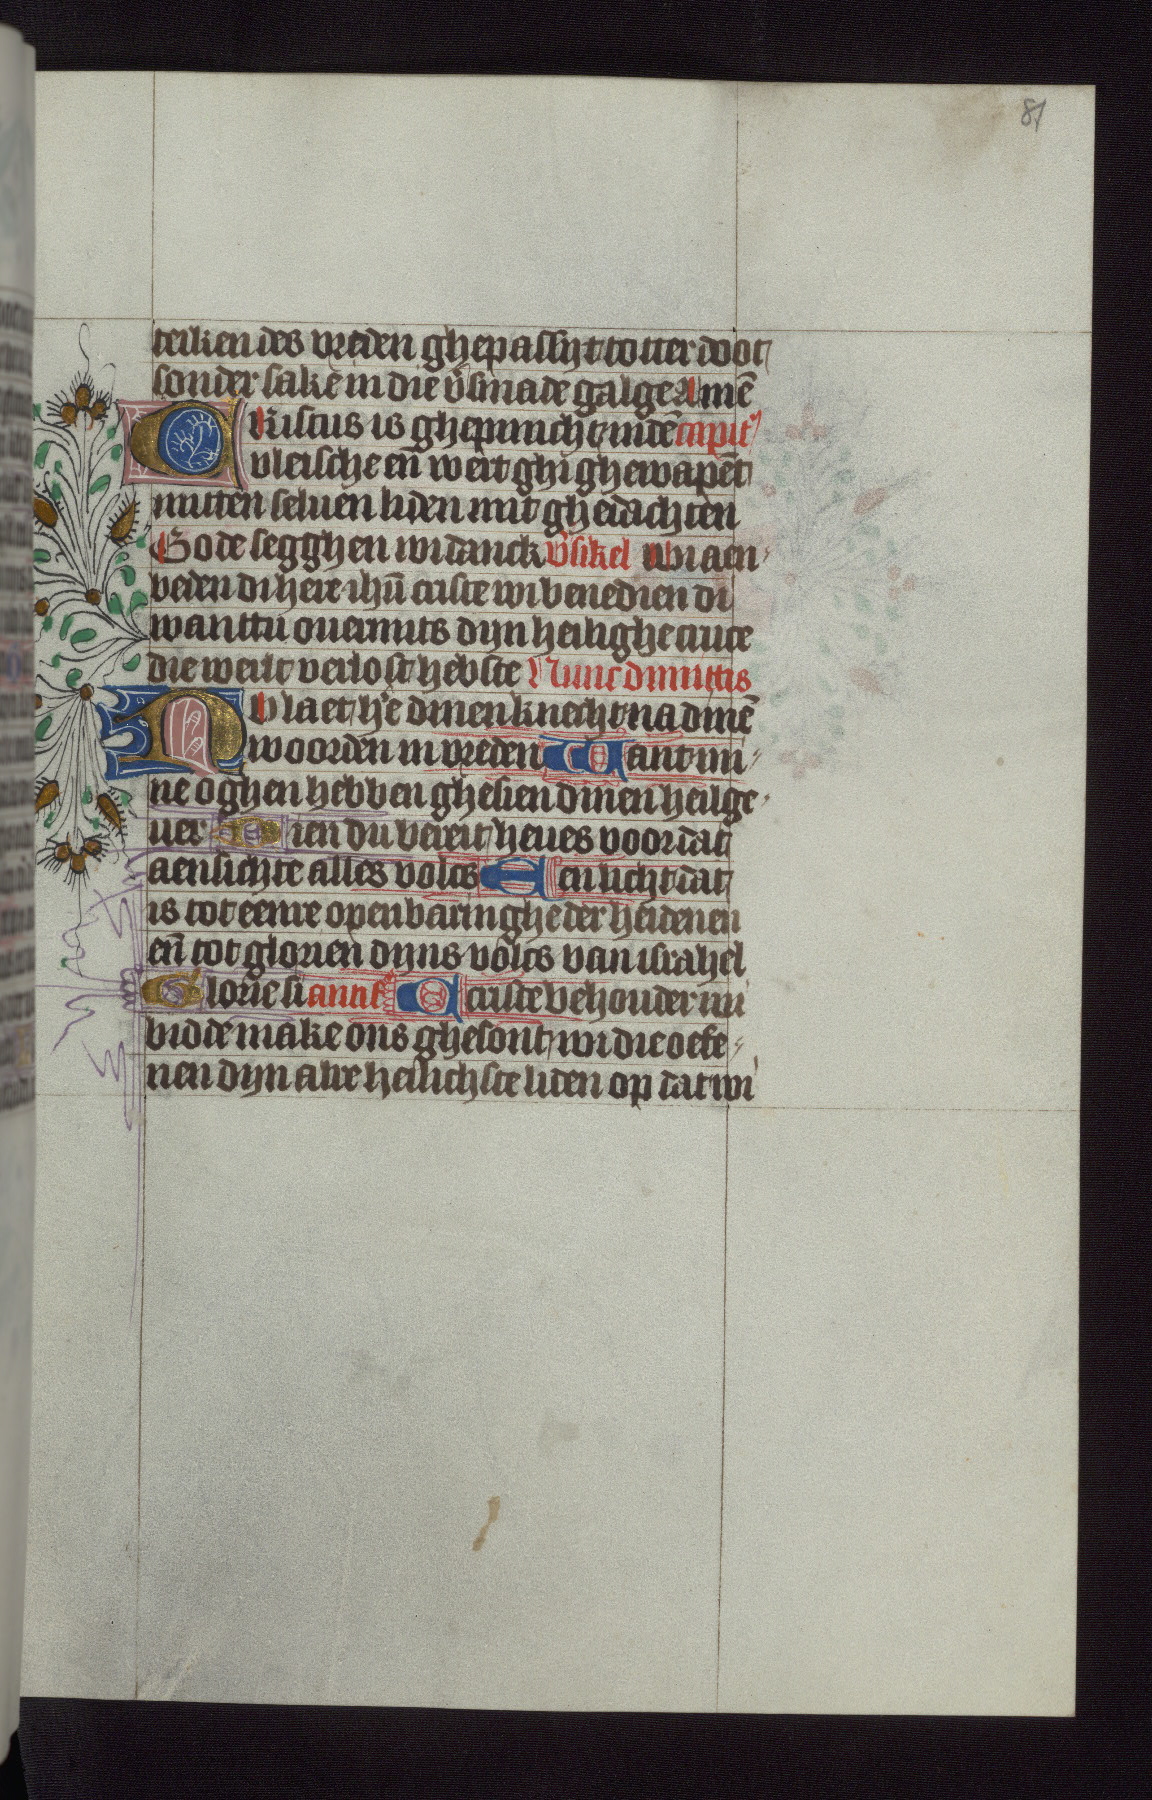 81
teiken des vreden ghepassyt totter doot
sonder sakē in die v̄smade galge Amē
CRistus is ghepinicht in dē capit
vleische en̄ weit ghi ghewapēt
mitten seluen liden mit ghedachten
Gode segghen wi danck v̄sikel Wi aen
beden di here ihū criste wi benedien di
wanttu ouermits dijn heilighe cruce
die werlt verlost hebste Nunc dimittis
NV laet he dinen knecht na dinē
woorden in vreden Want mi
ne oghen hebben ghesien dinen heilge
uer Dien du bereit heues voor dat
aensichte alles volcs Een licht dat
is tot eenre openbaringhe der heidenen
en̄ tot glorien dijns volcs van israhel
Glorie si antif O criste behouder wi
bidde make ons ghesont wi die oefe
nen dijn alre heilichste liden op dat wi